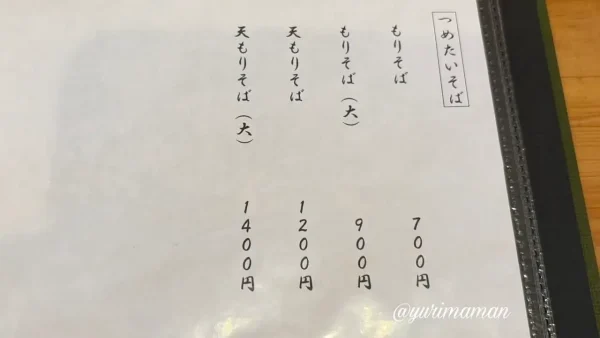 つめたいそば
もりそば 700円
もりそば（大） 900円
天もりそば 1200円
天もりそば（大） 1400円
@yurimaman